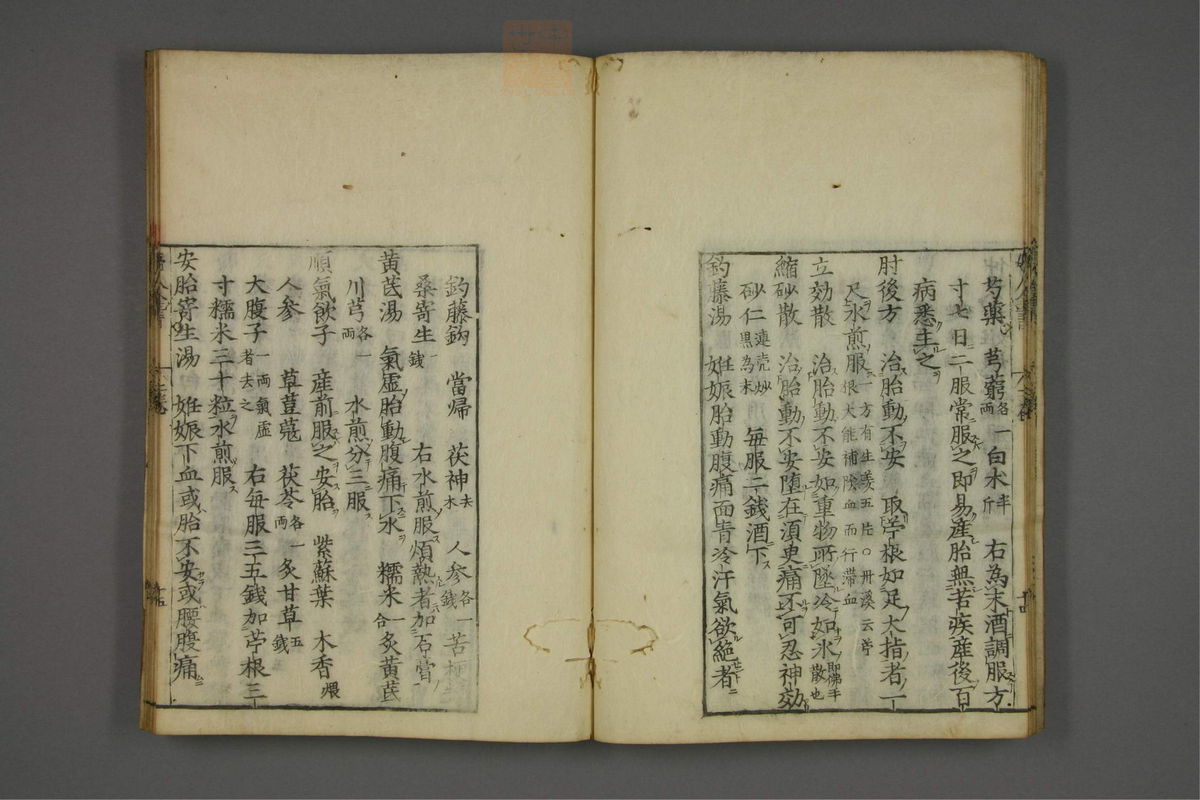 芍薬 芎藭各一両 白朮半斤 右為末酒調服方
寸七日二服常服之即易産胎無苦疾産後百
病悉主之
肘後方 治胎動不安 取苧根如足大指者一
尺水煎服一方有生姜五片○丹溪云苧根大能補陰血而行滞血
立効散 治胎動不安如重物所墜冷如氷即佛手散也
縮砂散 治胎動不安墮在須臾痛不可忍神効
砂仁連壳炒黒為末 毎服二錢酒下
鈎藤湯 妊娠胎動腹痛面青冷汗氣欲絶者
鈎藤鈎 當帰 茯神去木 人参各一錢 苦梗
桑寄生一錢 右水煎服煩熱者加石膏
黄芪湯 氣虚胎動腹痛下水 糯米一合 炙黄芪
川芎各一両 水煎分三服
順氣飲子 産前服之安胎 紫蘇葉 木香煨
人参 草荳蔻 茯苓各一両 炙甘草五錢
大腹子一両氣虚者去之 右毎服三五錢加苧根三
寸糯米三十粒水煎服
安胎寄生湯 妊娠下血或胎不安或腰腹痛